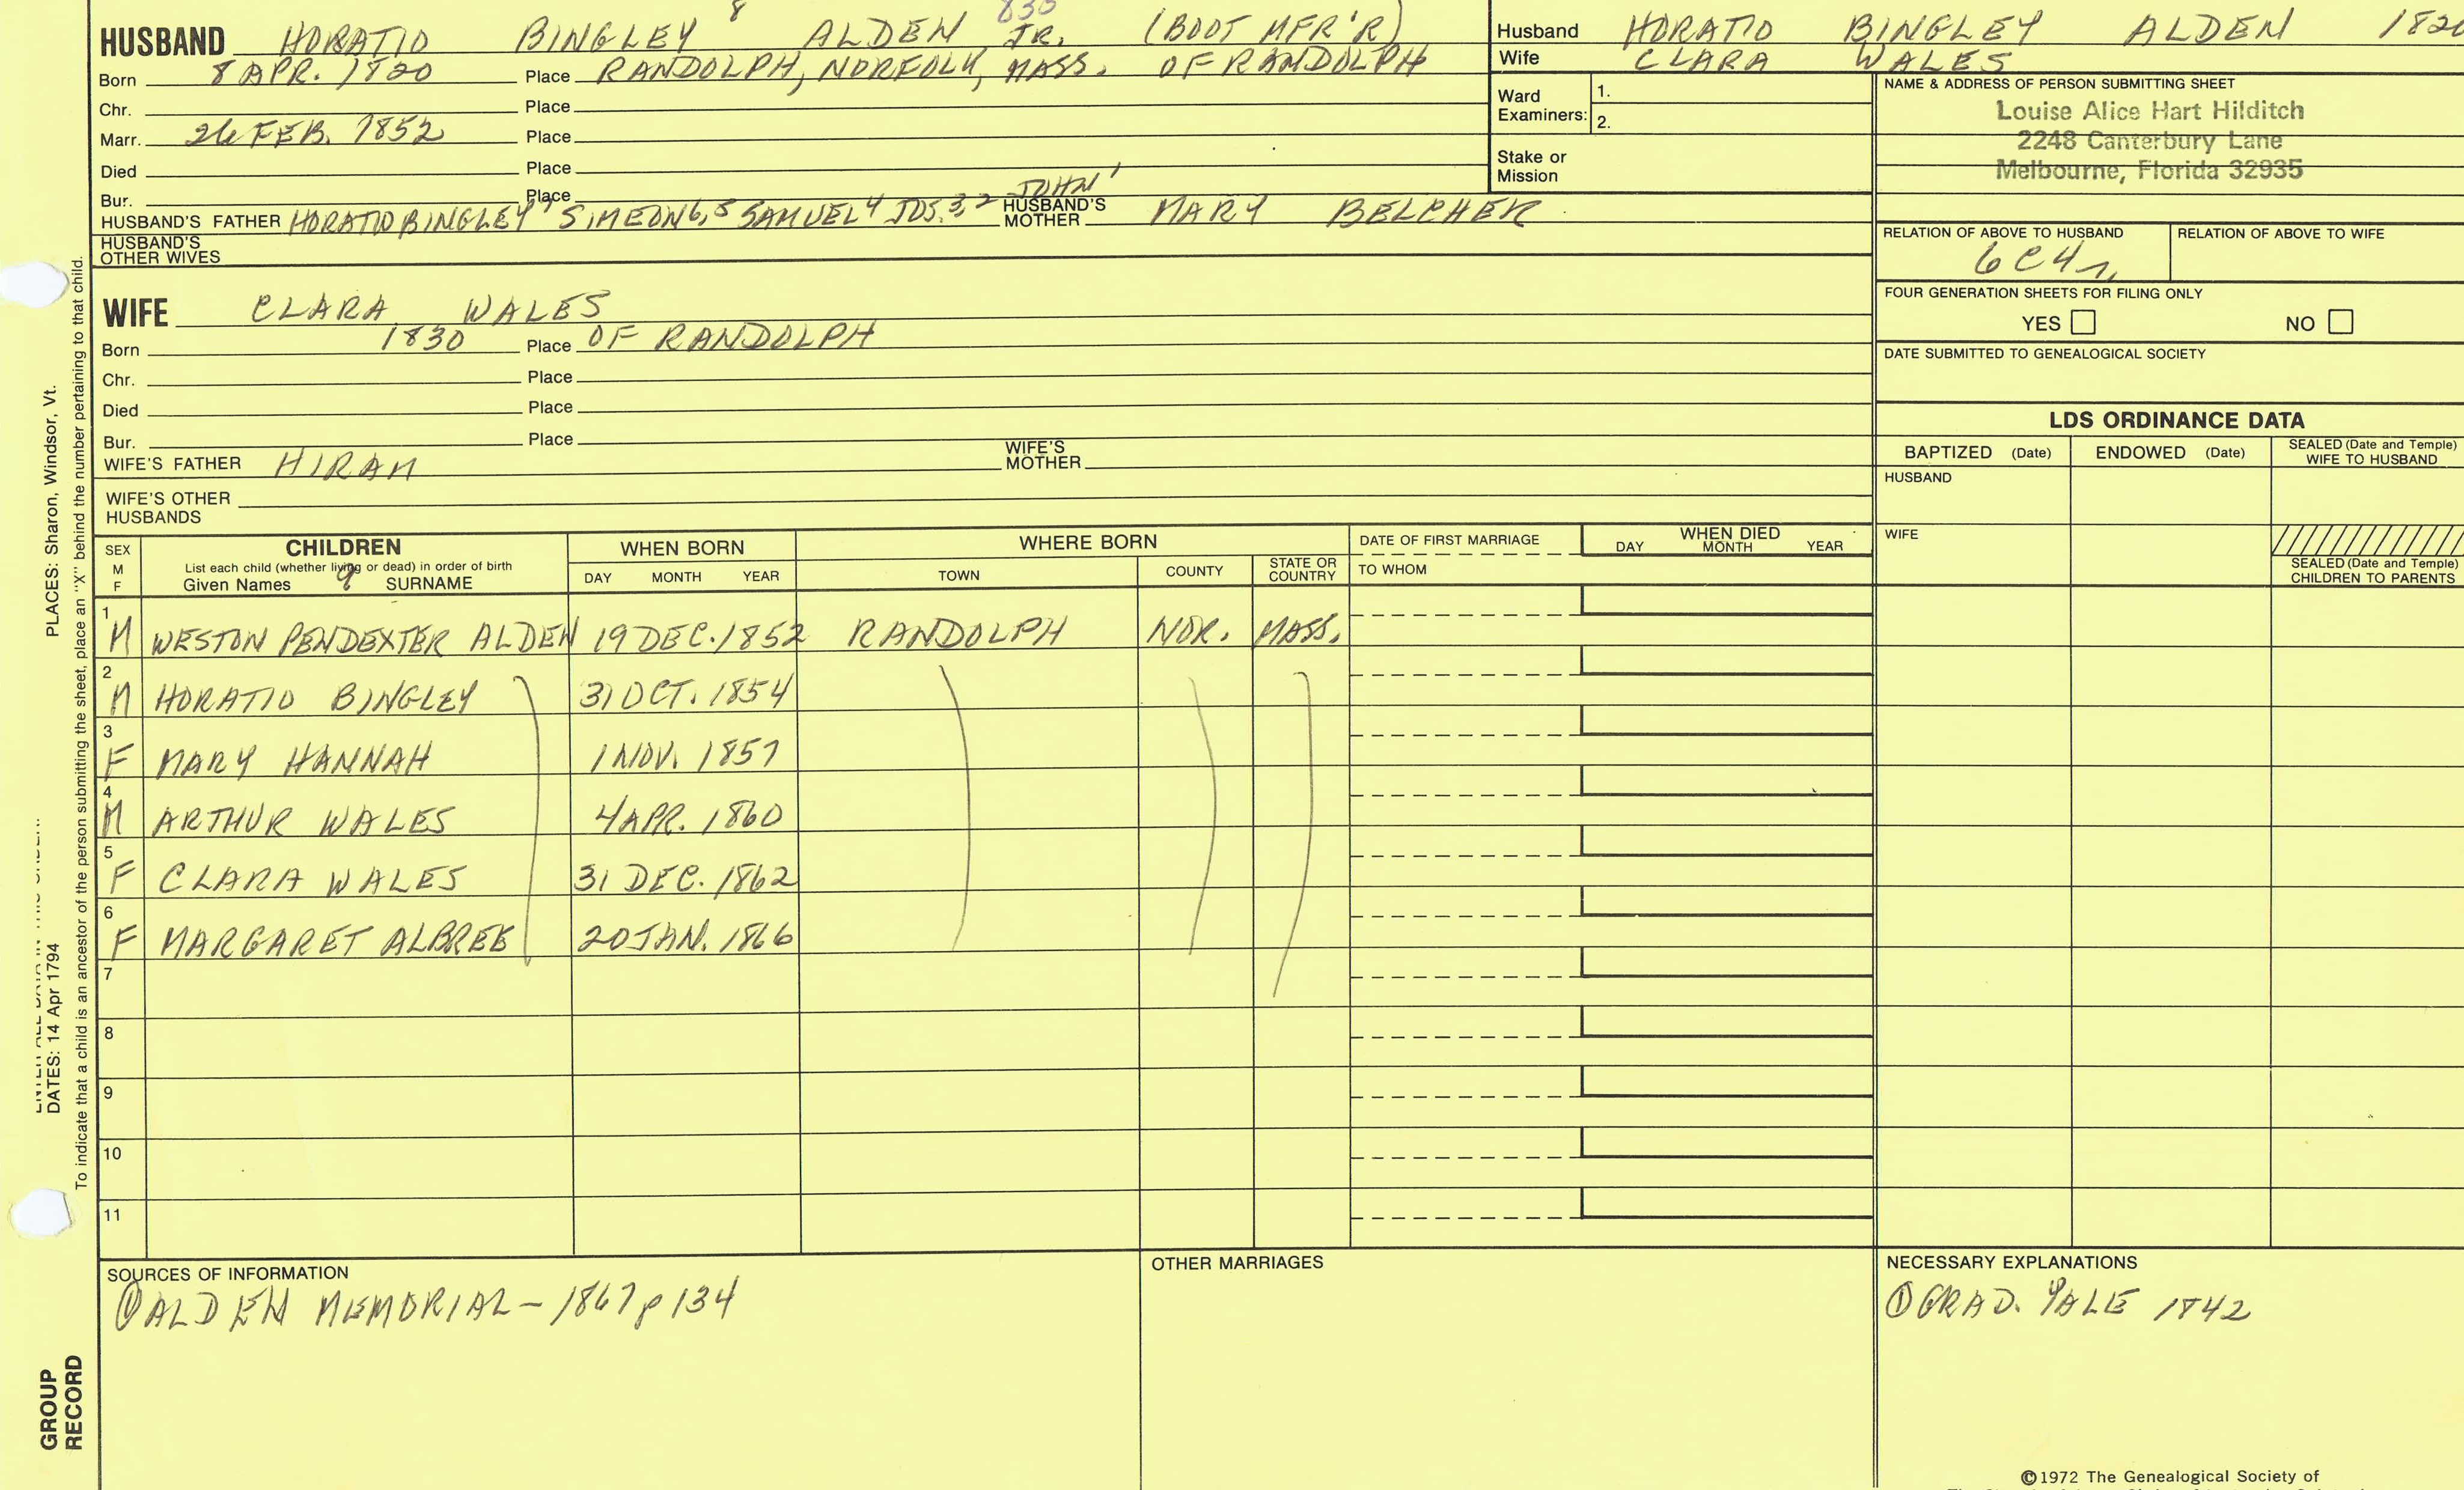 8 830
HUSBAND HORATIO BINGLEY ALDEN JR. (BOOT MFR'R)
Born 8 APR. 1820 Place RANDOLPH, NORFOLK, MASS. OF RANDOLPH
Chr. Place
Marr. 26 FEB. 1852 Place
Died Place
Bur. Place
JOHN 1
HUSBAND'S FATHER HORATIO BINGLEY 7 SIMEON 6,5 SAMUEL 4 JOS. 3,2 HUSBAND'S MOTHER MARY BELCHER
HUSBAND'S
OTHER WIVES
Husband HORATIO BINGLEY ALDEN 1820
Wife CLARA WALES
Ward
Examiners:
1.
2.
Stake or
Mission
NAME & ADDRESS OF PERSON SUBMITTING SHEET
Louise Alice Hart Hilditch
2248 Canterbury Lane
Melbourne, Florida 32935
RELATION OF ABOVE TO HUSBAND RELATION OF ABOVE TO WIFE
6C4r
FOUR GENERATION SHEETS FOR FILING ONLY
YES NO
DATE SUBMITTED TO GENEALOGICAL SOCIETY
WIFE CLARA WALES
Born 1830 Place OF RANDOLPH
Chr. Place
Died Place
Bur. Place
WIFE'S FATHER HIRAM WIFE'S MOTHER
WIFE'S OTHER
HUSBANDS
LDS ORDINANCE DATA
BAPTIZED (Date) ENDOWED (Date) SEALED (Date and Temple)
WIFE TO HUSBAND
HUSBAND
WIFE
SEALED (Date and Temple)
CHILDREN TO PARENTS
SEX
M
F
CHILDREN
List each child (whether living or dead) in order of birth
Given Names 9 SURNAME
WHEN BORN
DAY MONTH YEAR
WHERE BORN
TOWN COUNTY STATE OR
COUNTRY
DATE OF FIRST MARRIAGE
TO WHOM
WHEN DIED
DAY MONTH YEAR
1 M WESTON PENDEXTER ALDEN 19 DEC. 1852 RANDOLPH NOR. MASS.
2 M HORATIO BINGLEY 31 OCT. 1854
3 F MARY HANNAH 1 NOV. 1857
4 M ARTHUR WALES 4 APR. 1860
5 F CLARA WALES 31 DEC. 1862
6 F MARGARET ALBREE 20 JAN. 1866
7
8
9
10
11
SOURCES OF INFORMATION
① ALDEN MEMORIAL - 1867 p 134
OTHER MARRIAGES
NECESSARY EXPLANATIONS
① GRAD. YALE 1842
©1972 The Genealogical Society of
PLACES: Sharon, Windsor, Vt.
DATES: 14 Apr 1794
To indicate that a child is an ancestor of the person submitting the sheet, place an "X" behind the number pertaining to that child.
GROUP
RECORD